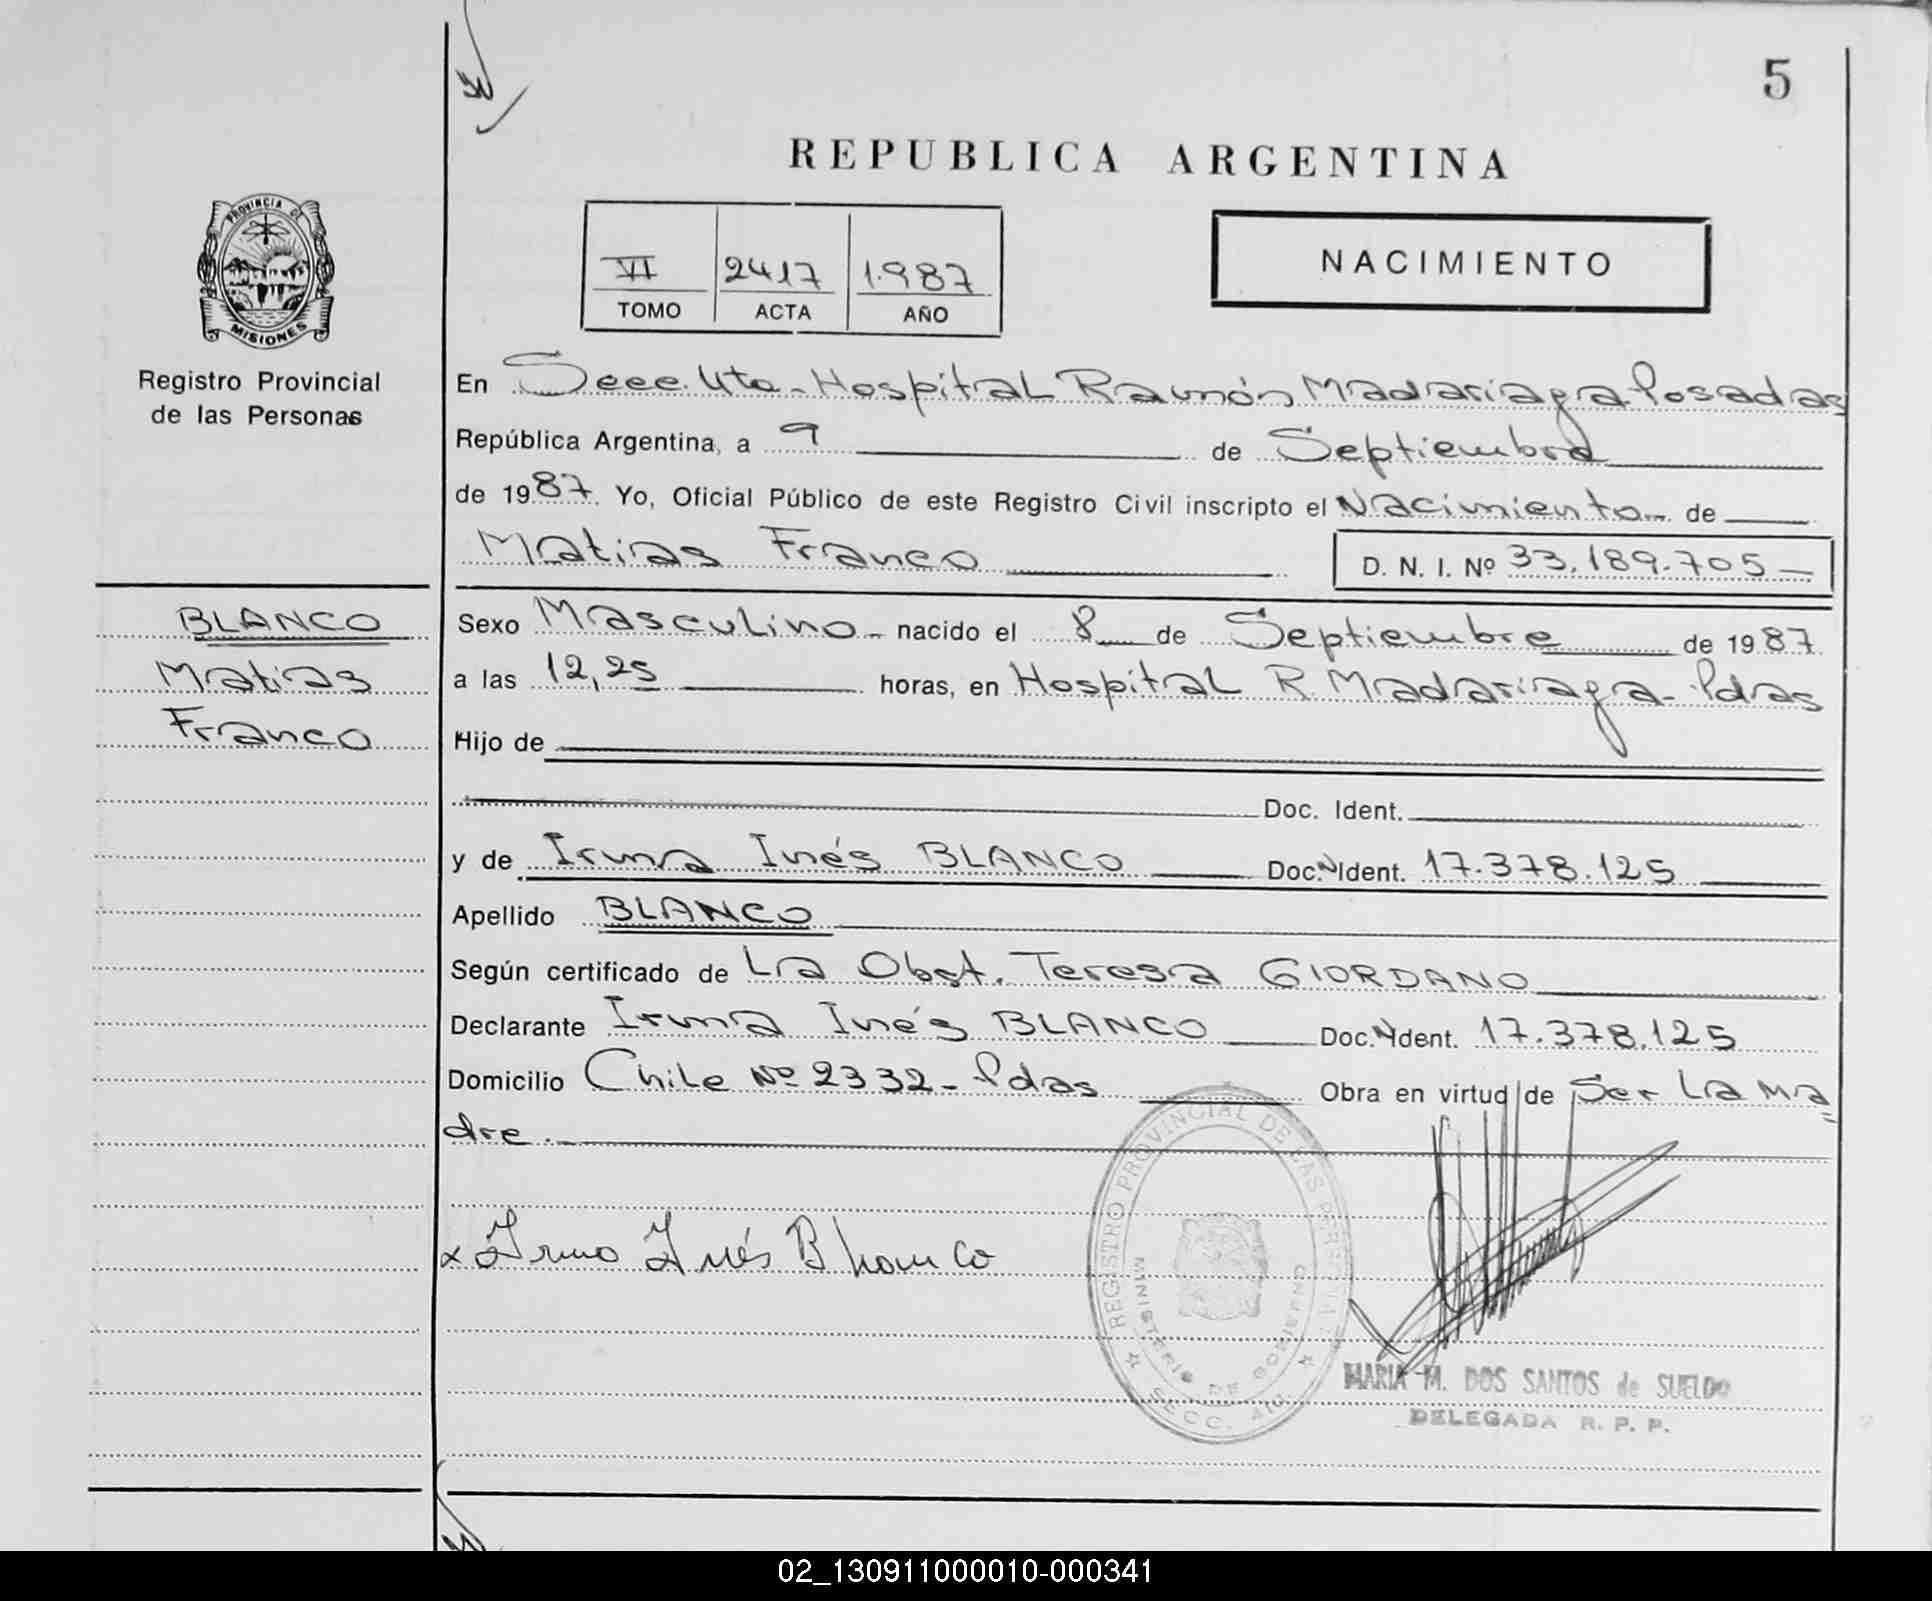 5
REPUBLICA ARGENTINA
PROVINCIA DE
MISIONES
Registro Provincial
de las Personas
VI 2417 1.987
TOMO ACTA AÑO
NACIMIENTO
En Secc. 4ta - Hospital Ramón Madariaga Posadas
República Argentina, a 9 de Septiembre
de 1987. Yo, Oficial Público de este Registro Civil inscripto el Nacimiento de
Matias Franco D. N. I. Nº 33.189.705
BLANCO
Matias
Franco
Sexo Masculino nacido el 8 de Septiembre de 1987
a las 12,25 horas, en Hospital R. Madariaga - Pdas
Hijo de
Doc. Ident.
y de Irma Inés BLANCO Doc. N Ident. 17.378.125
Apellido BLANCO
Según certificado de La Obst. Teresa GIORDANO
Declarante Irma Inés BLANCO Doc. N Ident. 17.378.125
Domicilio Chile Nº 2332 - Pdas Obra en virtud de Ser La Ma
dre.
x Irma Inés Blanco
REGISTRO PROVINCIAL DE LAS PERSONAS
MINISTERIO DE GOBIERNO
SECC. 4ta.
MARIA M. DOS SANTOS de SUELDO
DELEGADA R. P. P.
02_130911000010-000341